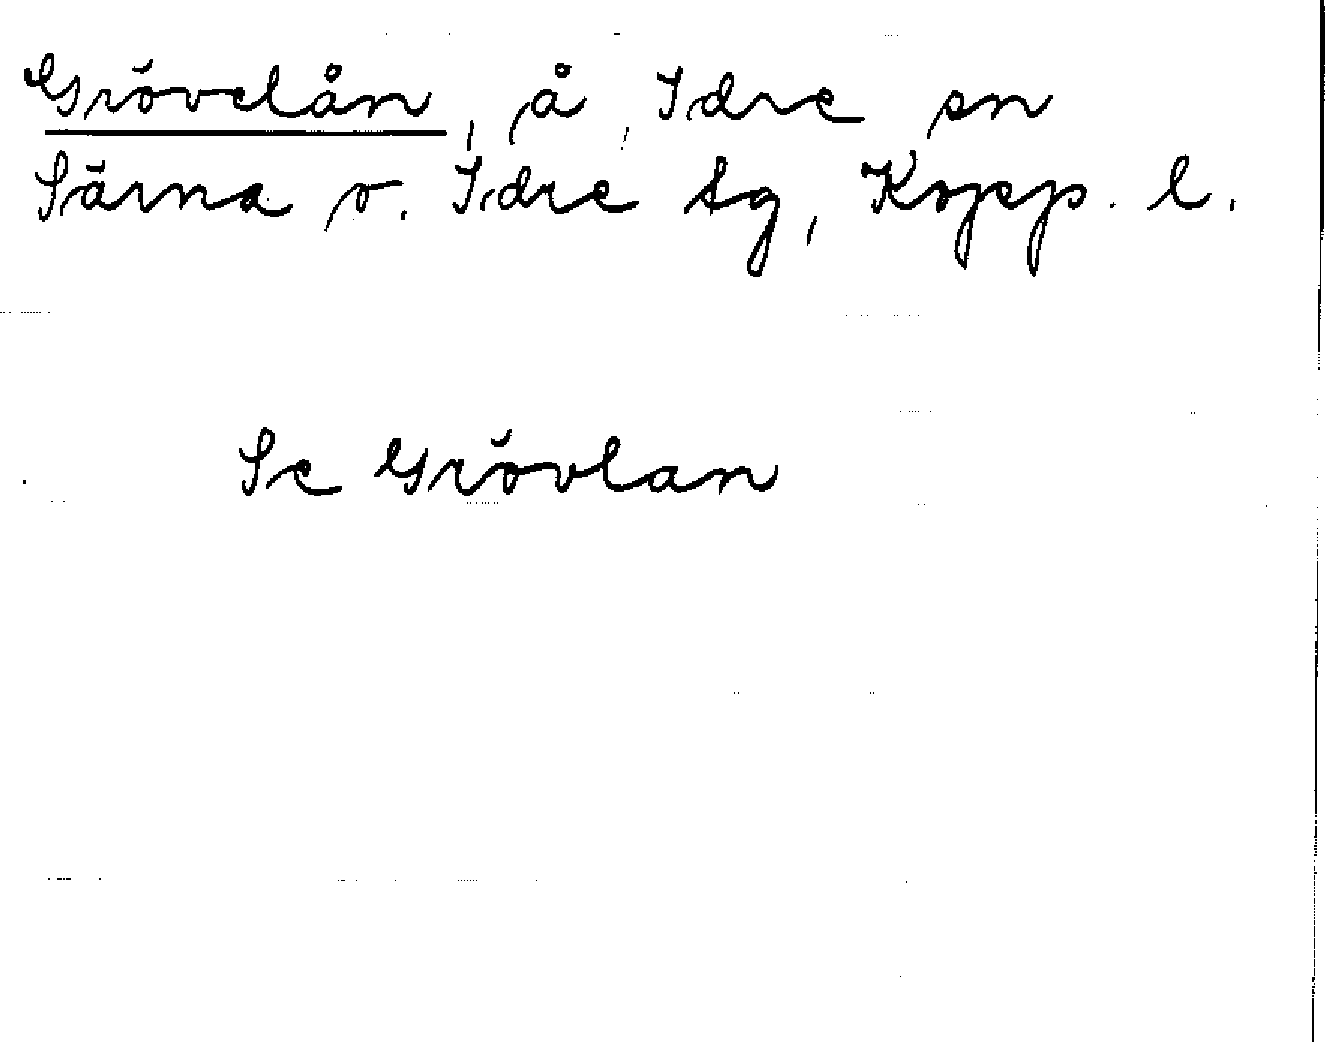 Grövelån, å, Idre sn
Särna o. Idre tg, Kopp. l.
Se Grövlan